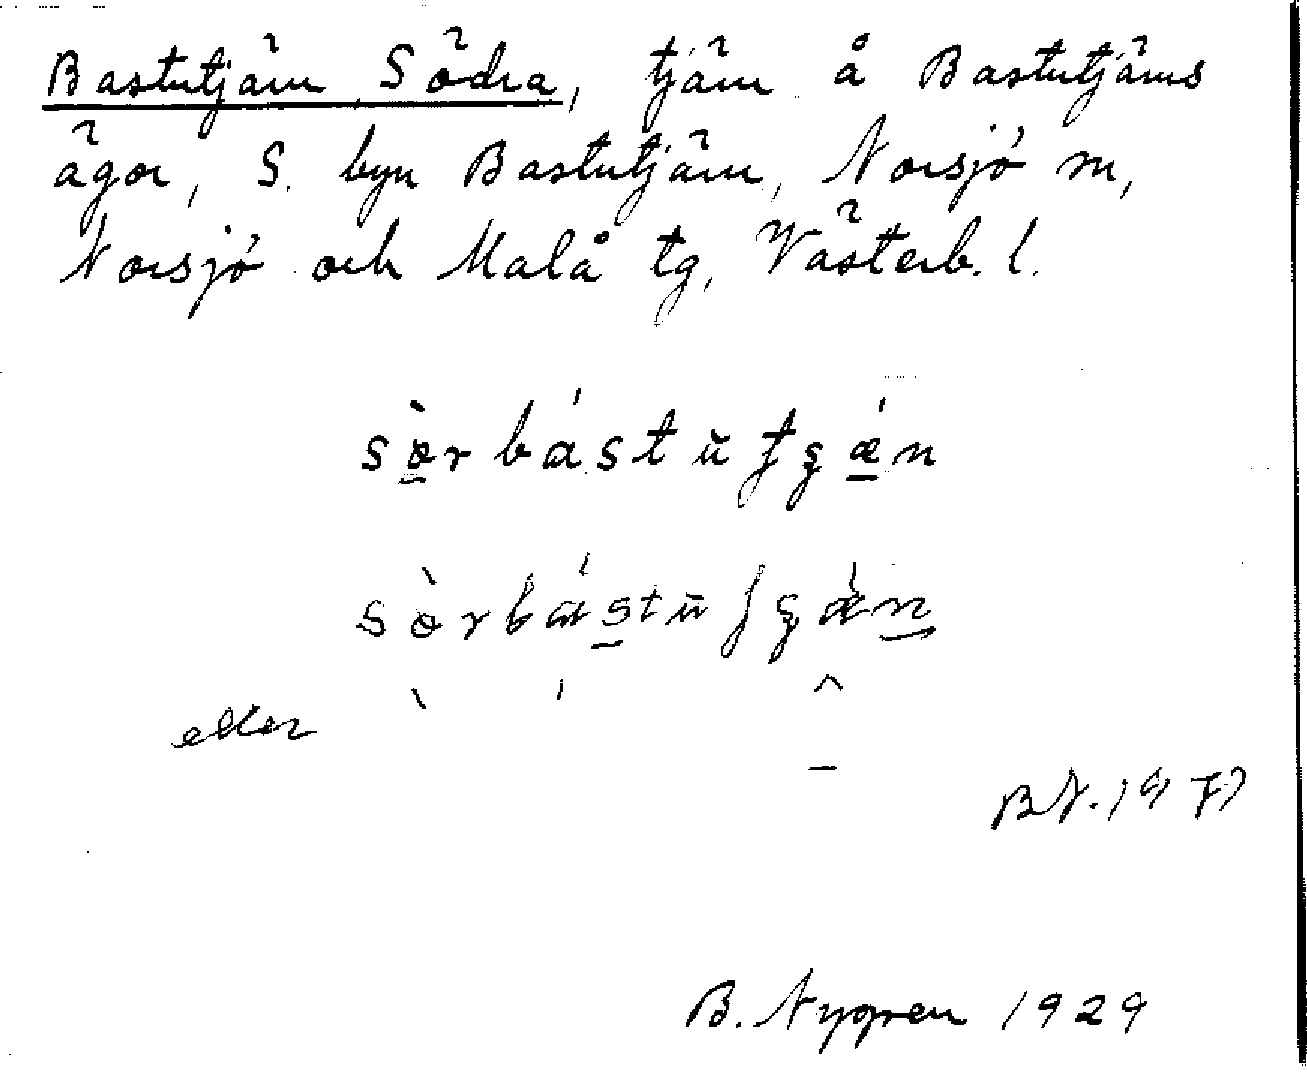 Bastutjärn, Södra, tjärn å Bastutjärns
ägor, S. byn Bastutjärn, Norsjö sn,
Norsjö och Malå tg, Västerb. l.
eller
B.N. 1971
B. Nygren 1929